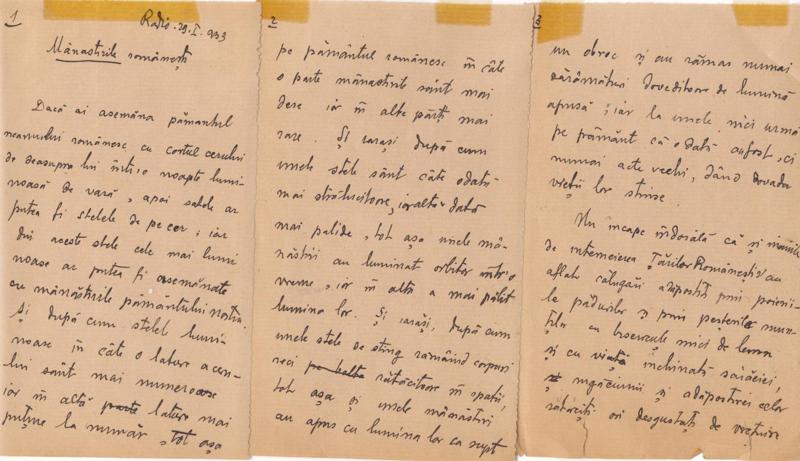 1
Radio . 29. I. 933
Mănăstirile românești
Dacă ai asemăna pământul
neamului românesc cu cortul cerului
de deasupra lui într'o noapte lumi-
noasă de vară, apoi satele ar
putea fi stelele de pe cer; iar
din aceste stele cele mai lumi
noase ar putea fi asemănate
cu mănăstirile pământului nostru.
Și după cum stelele lumi-
noase în câte o lature a ceru-
lui sânt mai numeroase
iar în altă parte lature mai
puține la număr, tot așa
2
pe pământul românesc în câte
o parte mănăstirile sânt mai
dese iar în alte părți mai
rare. Și iarăși după cum
unele stele sânt câte odată
mai strălucitoare, iar altă dată
mai palide, tot așa unele mă-
năstiri au luminat orbitor într'o
vreme, iar în alta a mai pălit
lumina lor. Și iarăși, după cum
unele stele se sting rămăind corpuri
reci rătăcitoare în spații,
tot așa și unele mănăstiri
au apus cu lumina lor ca supt
3
un obroc și au rămas numai
dărâmături doveditoare de lumină
apusă; iar la unele nici urmă
pe pământ că odată au fost, ci
numai acte vechi, dând dovada
vieții lor stinse.
Nu încape îndoială că și înainte
de întemeierea Țărilor Românești s'au
aflat călugări adăpostiți prin poienii-
le pădurilor și prin peșterile mun-
ților cu bisericuțe mici de lemn
și cu viață închinată sărăciei,
rugăciunii și adăpostirei celor
rătăciți ori desgustați de viețuire